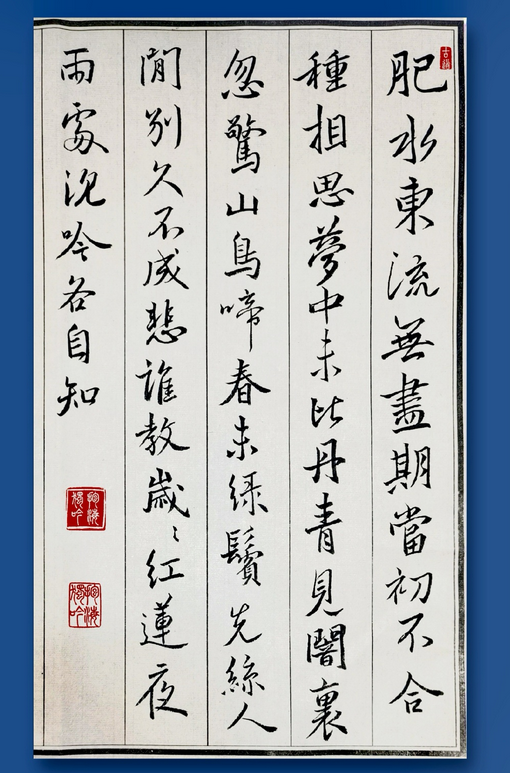 肥水東流無盡期當初不合
種相思夢中未比丹青見闇裏
忽驚山鳥啼春未綠鬢先絲人
閒別久不成悲誰教歲〻紅蓮夜
兩處沉吟各自知